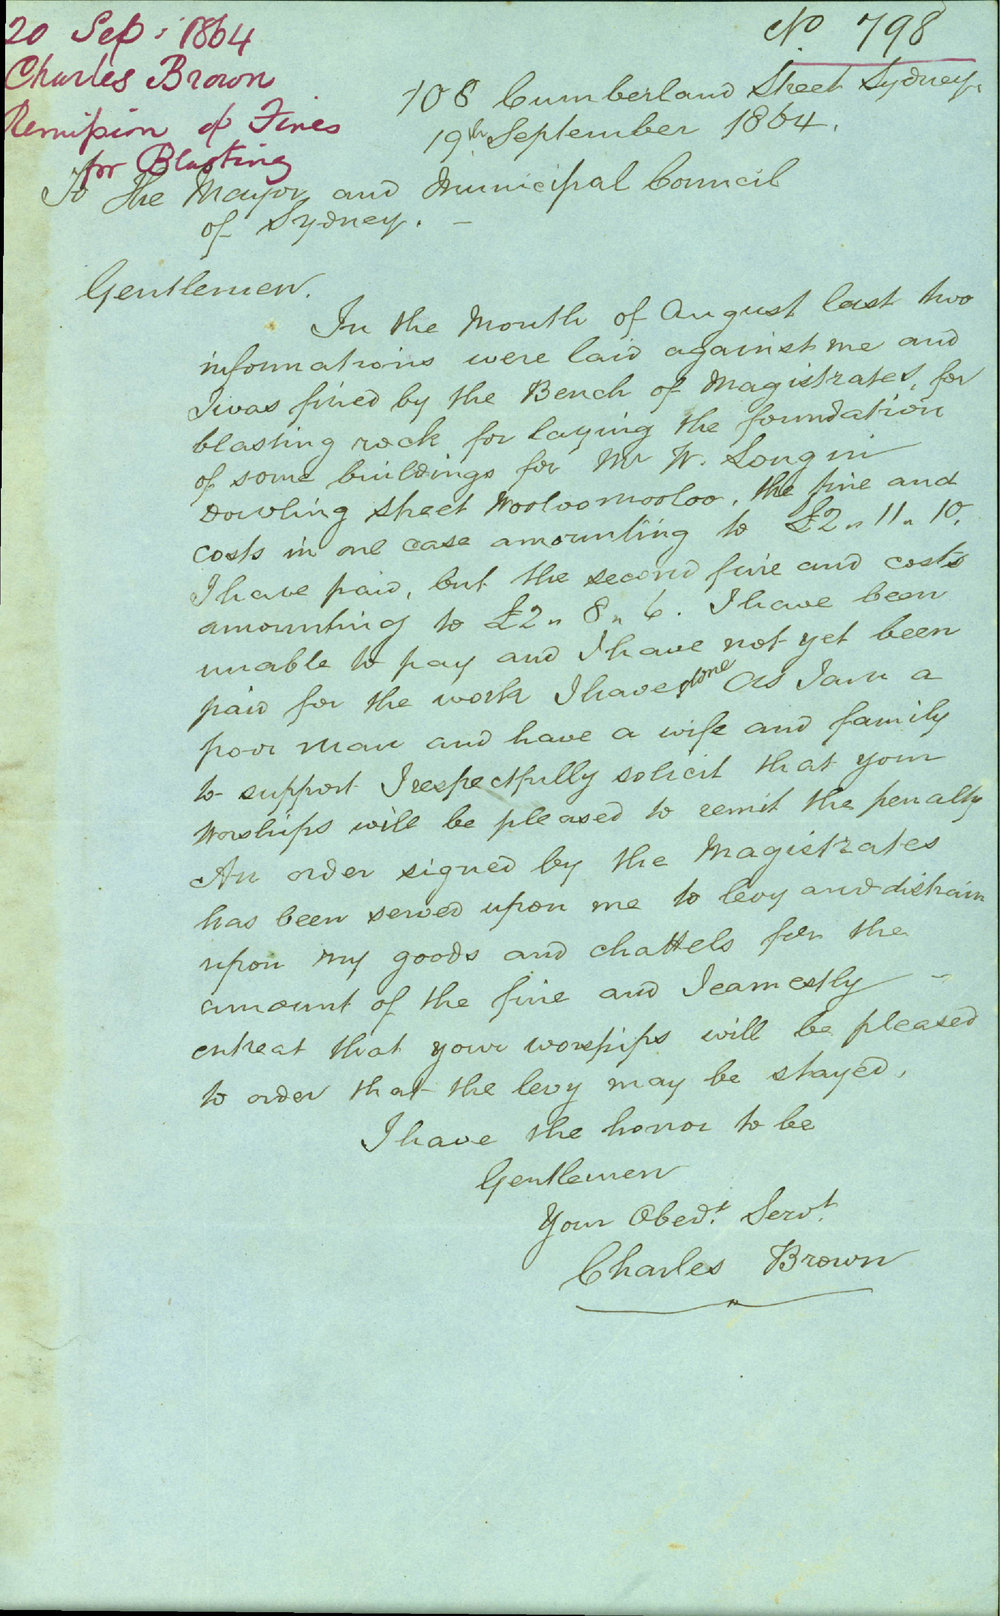 20 Sep: 1864
Charles Brown
Remission of Fines
for Blasting
No 798
108 Cumberland Street Sydney.
19th September 1864.
To The Mayor and Municipal Council
of Sydney. –
Gentlemen.
In the Month of August last two
informations were laid against me and
I was fined by the Bench of Magistrates, for
blasting rock for laying the foundation
of some buildings for Mr W. Long in
Dowling Street Wooloomooloo. The fine and
costs in one case amounting to £2 " 11 " 10.
I have paid, but the second fine and costs
amounting to £2 " 8 " 6. I have been
unable to pay and I have not yet been
paid for the work I have done As I am a
poor man and have a wife and family
to support I respectfully solicit that your
Worships will be pleased to remit the penalty
An order signed by the Magistrates
has been served upon me to levy and distrain
upon my goods and chattels for the
amount of the fine and I earnestly –
entreat that your worships will be pleased
to order that the levy may be stayed.
I have the honor to be
Gentlemen
Your Obedt. Servt.
Charles Brown